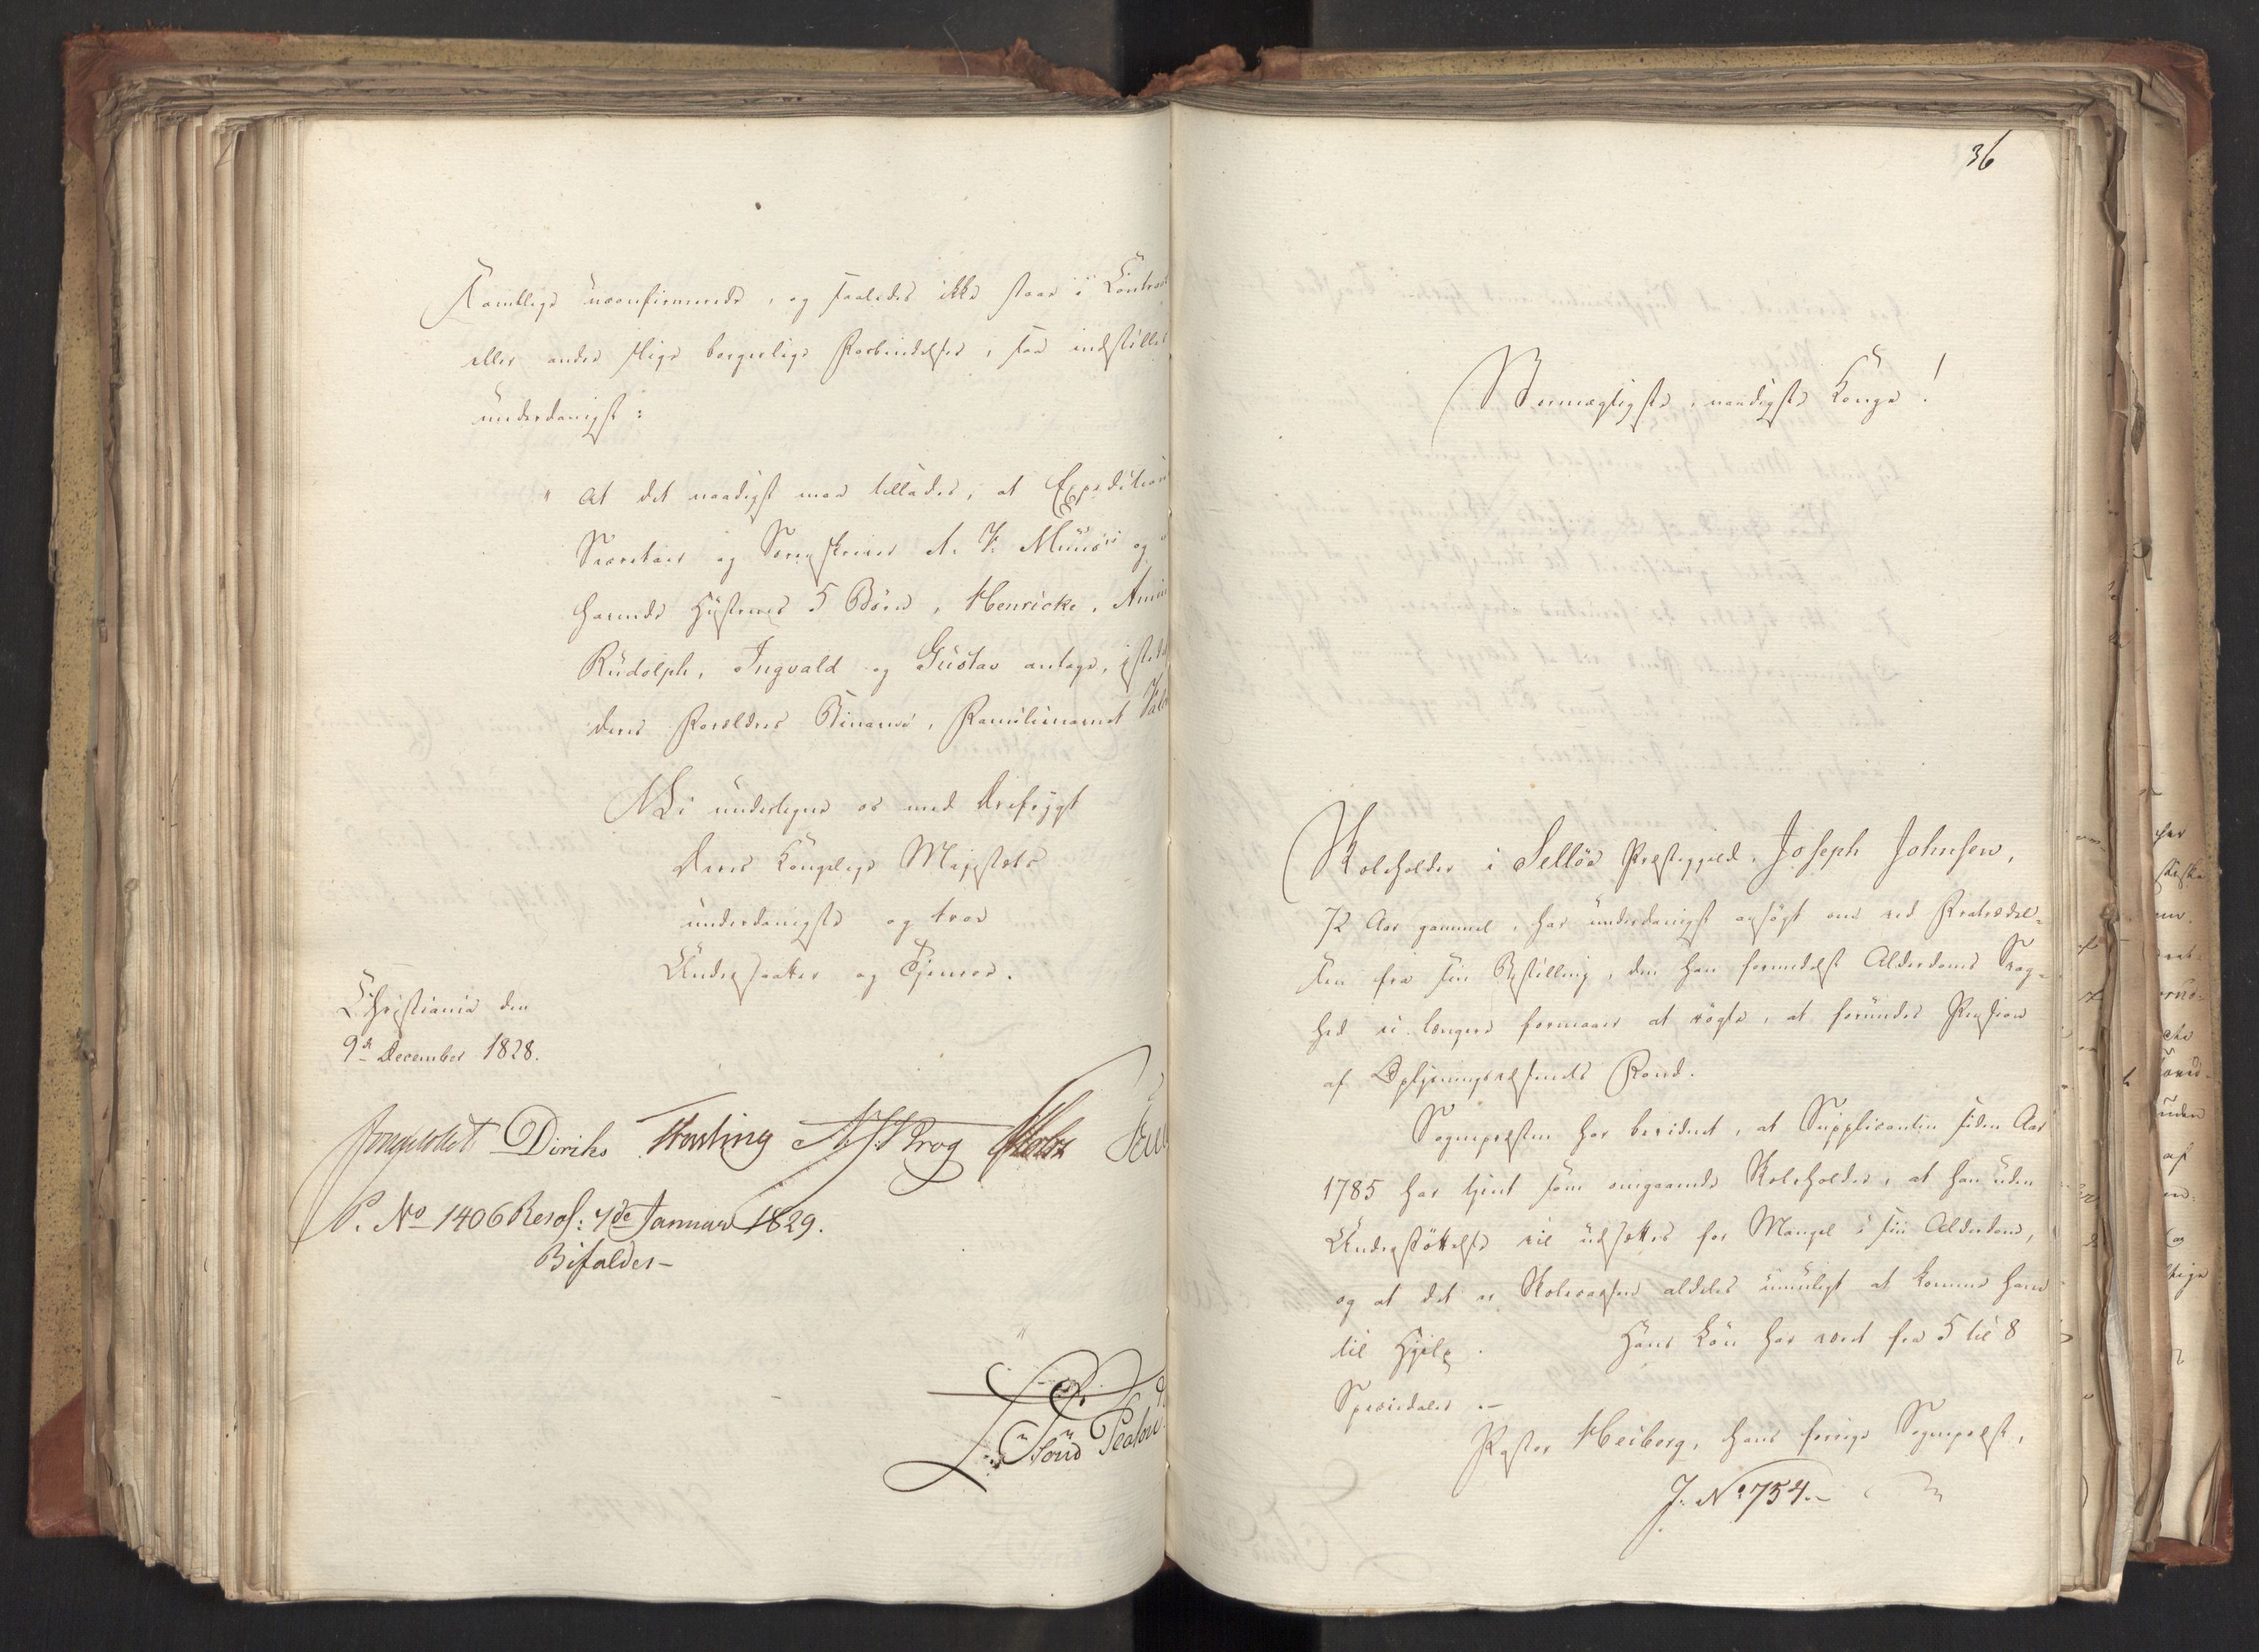 samtlige uconfirmerede, og saaledes ikke staae i Contract
eller andre slige borgerlige Forbindelser, saa indstilles
underdanigst:
" at det naadigst maa tillades, at Expeditions
Secretair og Sorenskriver A. V. og
hannds Hustrues 5 Børn, Henricke,
Rudolph, Ingvald og Gustav antage, istedet
deres Forældres Binavne, Familienavnet
Vi undertegne os med Ærefrygt
Deres Kongelige Majestæts
underdanigste og troe
Undersaatter og Tjenere.
Christiania den
9de December 1828.
Diriks Krog
P. No 1406 Resol: 7de Januar 1829.
Bifaldes –
36
Stormægtigste, naadigste Konge!
Skoleholder i Selløe Præstegjeld, Joseph Johnsen,
72 Aar gammel, har underdanigst ansøgt om ved Fratrædel-
sen fra sin Bestilling, den han formedelst Alderdoms Svag-
hed ei længere formaaer at røgte, at forundes Pension
af Oplysningsvæsenets Fond.
Sognepræsten har bevidnet, at Supplicanten siden Aar
1785 har tjent som omgaaende Skoleholder, at han uden
Understøttelse vil udsættes for Mangel i sin Alderdom,
og at det er Skolecassen aldeles umuligt at komme ham
til Hjelp. Hans Løn har været fra 5 til 8
Speciedaler. –
Pastor Heiberg, hans forrige Sognepræst,
J. No 754. –